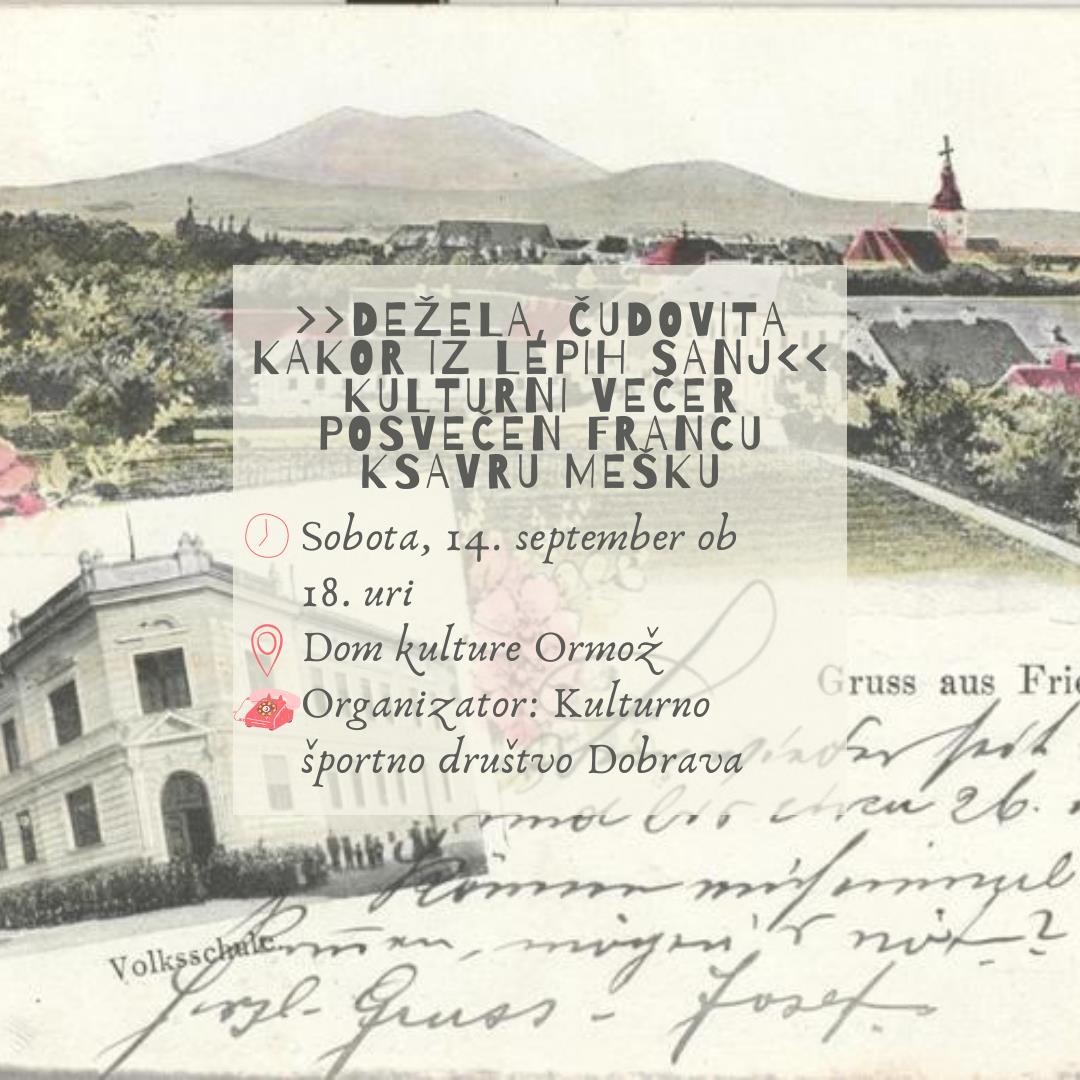 >>DEŽELA, ČUDOVITA
KAKOR IZ LEPIH SANJ<<
KULTURNI VEČER
POSVEČEN FRANCU
KSAVRU MEŠKU
Sobota, 14. september ob
18. uri
Dom kulture Ormož
Organizator: Kulturno
športno društvo Dobrava
Gruss aus Frie
26.
Volksschule.
Gruss - Josef.